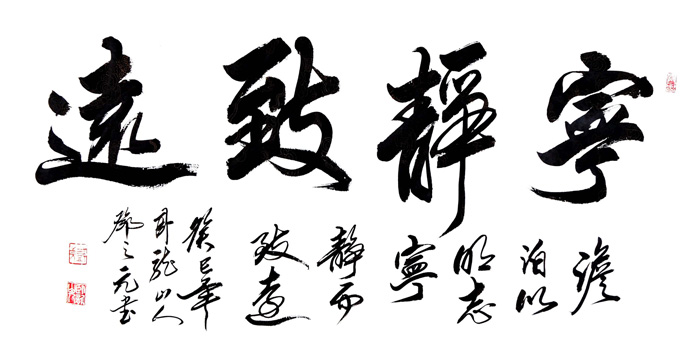 寧靜致遠
澹
泊以
明志
寧
静而
致遠
癸巳年
卧龍山人
之元書